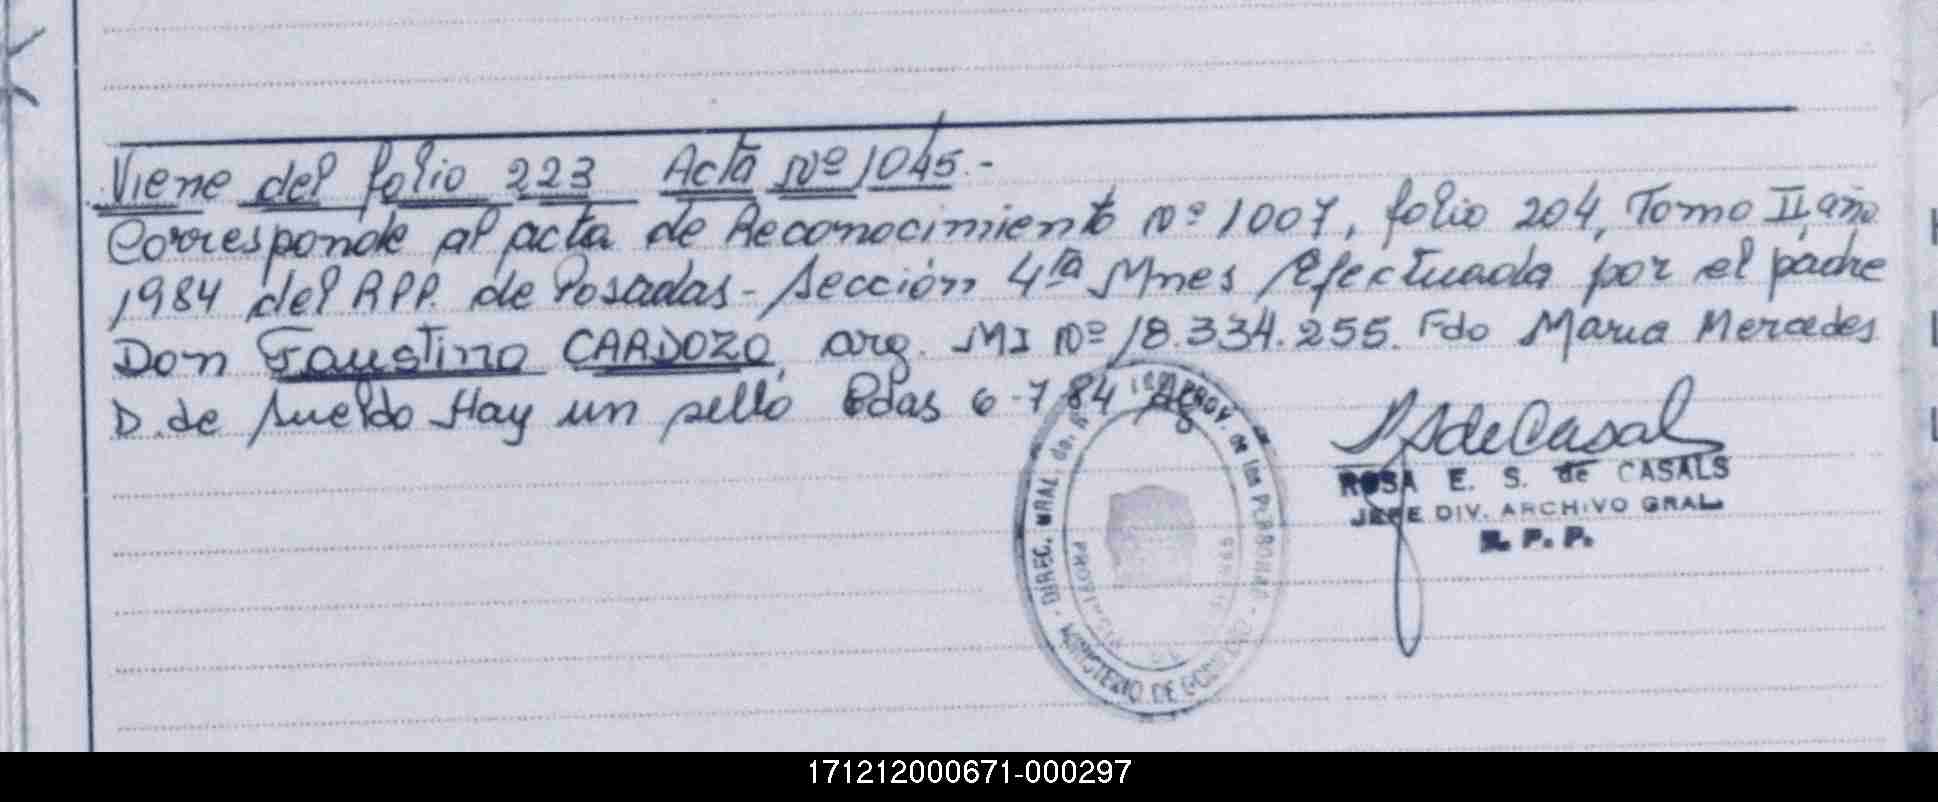 Viene del folio 223 Acta Nº 1045.-
Corresponde al acta de Reconocimiento Nº 1007, folio 204, Tomo II, año
1984 del RPP. de Posadas - Sección 4ta Mnes Efectuada por el padre
Don Faustino CARDOZO, arg. MI Nº 18.334.255. Fdo Maria Mercedes
D. de Sueldo Hay un sello Pdas 6-7-84
DIREC. GRAL. PROV. de las PERSONAS
MINISTERIO DE GOBIERNO
ROSA E. S. de CASALS
JEFE DIV. ARCHIVO GRAL.
R. P. P.
171212000671-000297